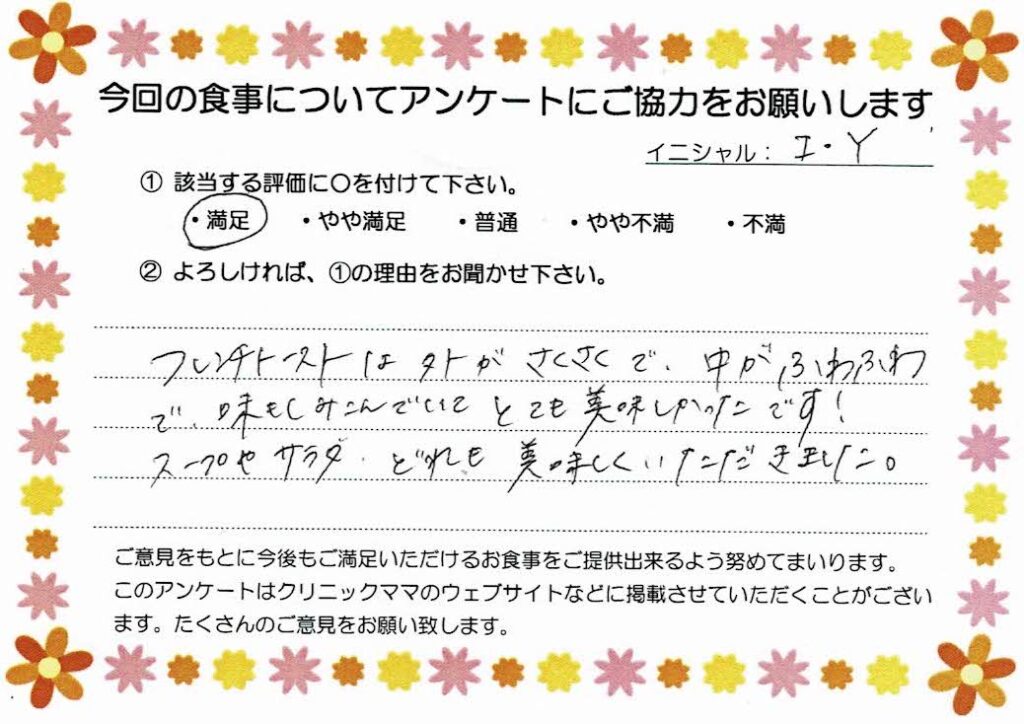 今回の食事についてアンケートにご協力をお願いします
イニシャル： エ・Y
① 該当する評価に〇を付けて下さい。
・満足 ・やや満足 ・普通 ・やや不満 ・不満
② よろしければ、①の理由をお聞かせ下さい。
フレンチトーストは外がさくさくで、中がふわふわ
で、味もしみこんでいてとても美味しかったです!
スープやサラダ、どれも美味しくいただきました。
ご意見をもとに今後もご満足いただけるお食事をご提供出来るよう努めてまいります。
このアンケートはクリニックママのウェブサイトなどに掲載させていただくことがござい
ます。たくさんのご意見をお願い致します。